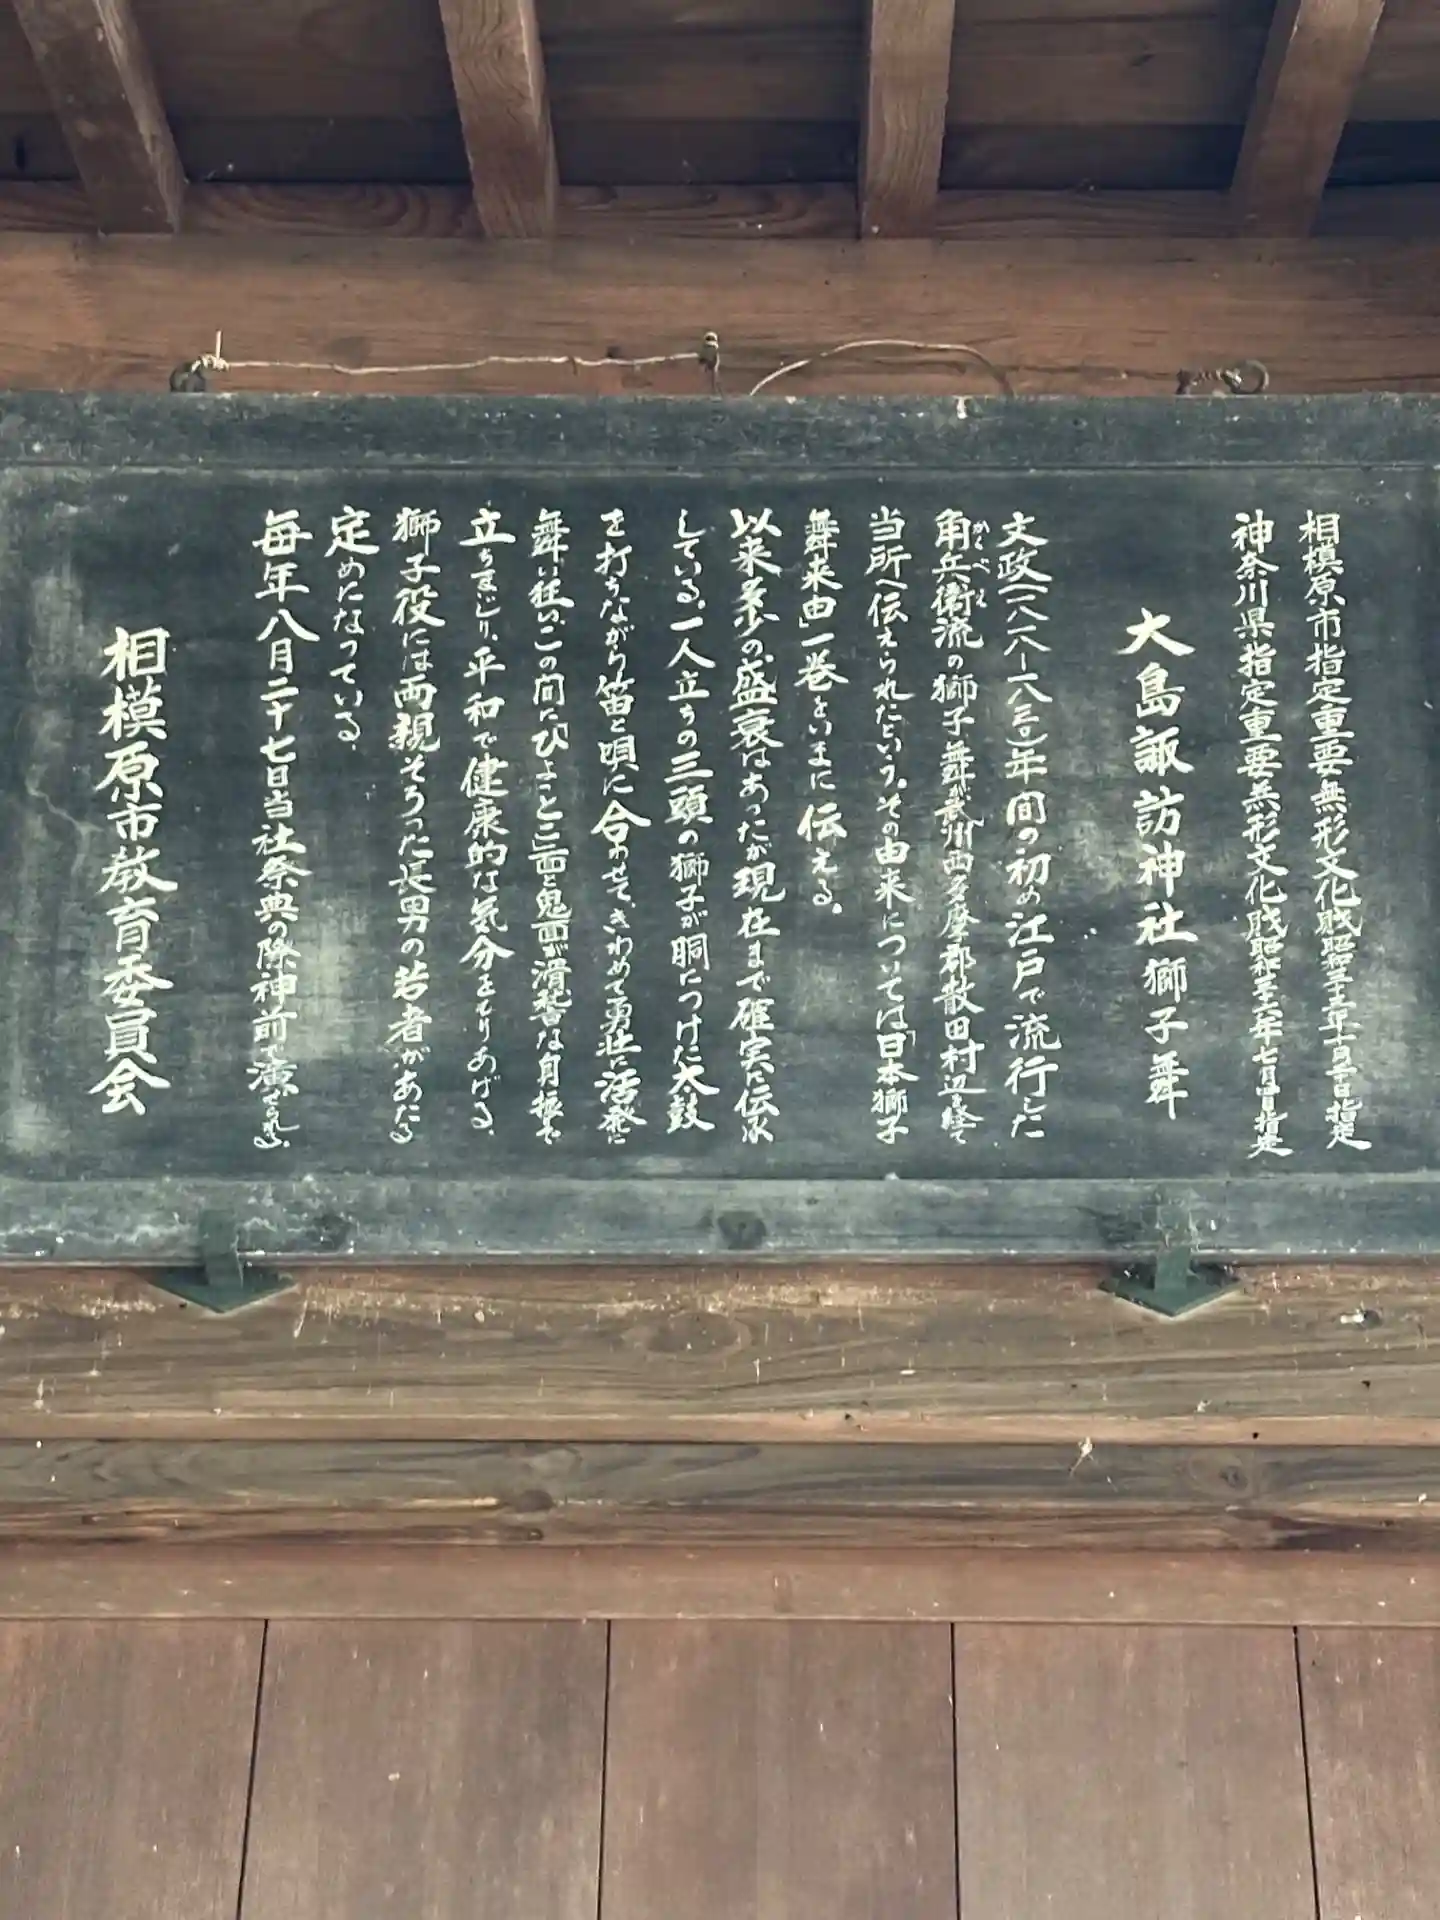 相模原市指定重要無形文化財昭和三十三年十月二十日指定
神奈川県指定重要無形文化財昭和三十六年七月四日指定
大島諏訪神社獅子舞
文政(一八一八ー一八三〇)年間の初め江戸で流行した
角兵衛流の獅子舞が武州西多摩郡散田村辺を経て
かくべえ
当所へ伝えられたという。その由来については「日本獅子
舞来由」一巻をいまに伝える。
以来多少の盛衰はあったが現在まで確実に伝承
している。一人立ちの三頭の獅子が胴につけた太鼓
を打ちながら笛と唄に合わせて、きわめて勇壮に活発に
舞い狂い、この間に「ひょっとこ」面と鬼面が滑稽な身振で
立ちまじり、平和で健康的な気分をもりあげる。
獅子役には両親そろった長男の若者があたる
定めになっている。
毎年八月二十七日当社祭典の際神前で演ぜられる。
相模原市教育委員会